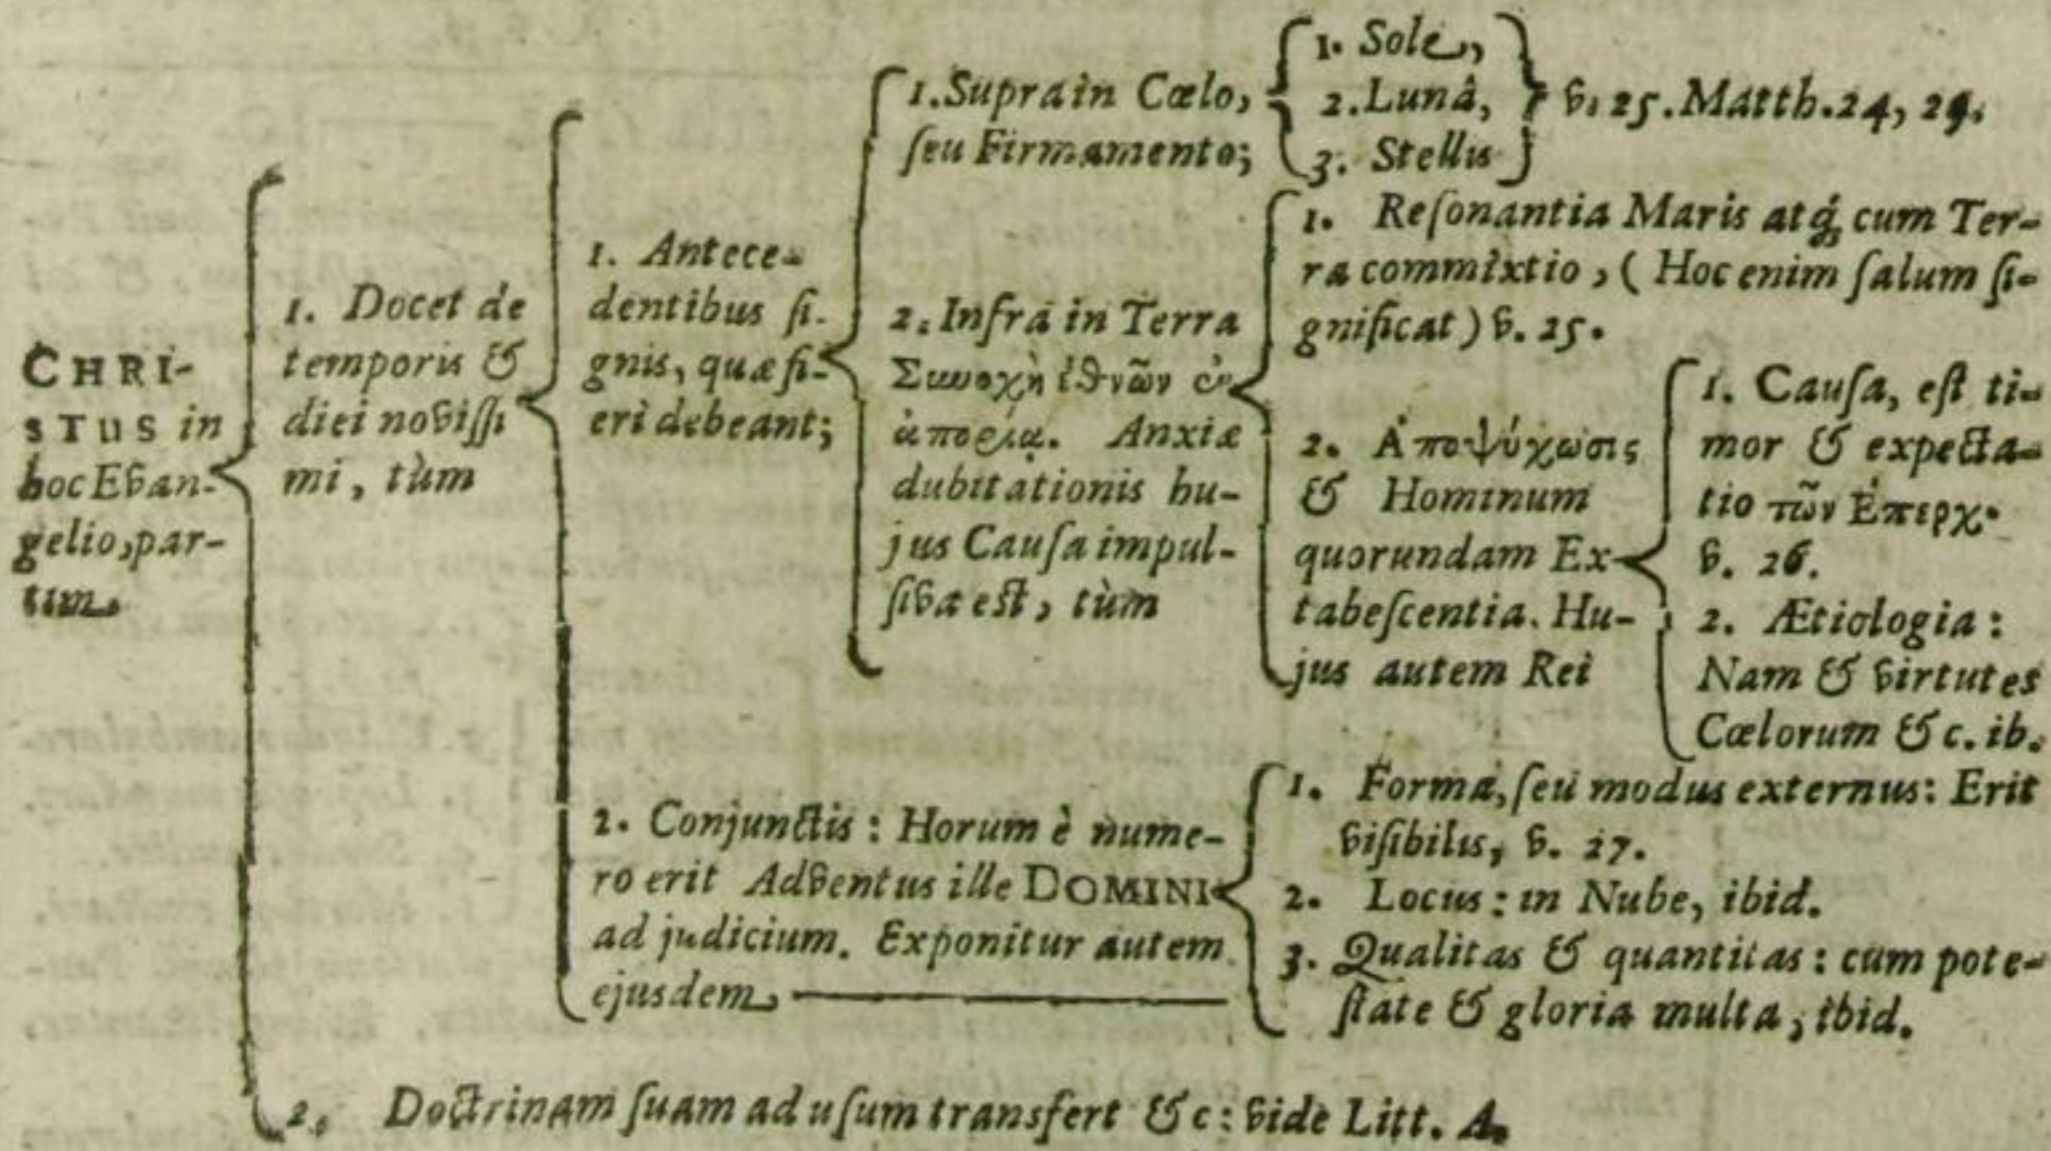 CHRI-
STUS in
hoc Evan-
gelio, par-
tim.
1. Docet de
temporis &
diei novissi
mi, tùm
1. Antece-
dentibus si-
gnis, quæ fi-
eri debeant;
1. Supra in Cœlo,
seu Firmamento;
1. Sole,
2. Lunâ,
3. Stellis
v. 25. Matth. 24, 29.
2. Infra in Terra
Συνοχὴ ἐθνῶν ἐν
ἀπορίᾳ. Anxiæ
dubitationis hu-
jus Causa impul-
siva est, tùm
1. Resonantia Maris atq́; cum Ter-
ra commixtio, (Hoc enim salum si-
gnificat) v. 25.
2. Ἀποψύχωσις
& Hominum
quorundam Ex-
tabescentia. Hu-
jus autem Rei
1. Causa, est ti-
mor & expecta-
tio τῶν Ἐπερχ.
v. 26.
2. Ætiologia:
Nam & virtutes
Cœlorum &c. ib.
2. Conjunctis: Horum è nume-
ro erit Adventus ille DOMINI
ad judicium. Exponitur autem
ejusdem
1. Forma, seu modus externus: Erit
visibilis, v. 27.
2. Locus: in Nube, ibid.
3. Qualitas & quantitas: cum pote-
state & gloria multa, ibid.
2. Doctrinam suam ad usum transfert &c: vide Litt. A.